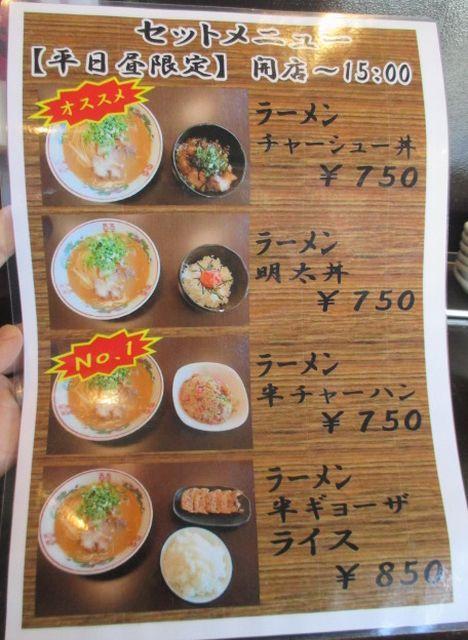 セットメニュー
【平日昼限定】 開店～15:00
オススメ
ラーメン
チャーシュー丼
¥750
ラーメン
明太丼
¥750
No.1
ラーメン
半チャーハン
¥750
ラーメン
半ギョーザ
ライス
¥850